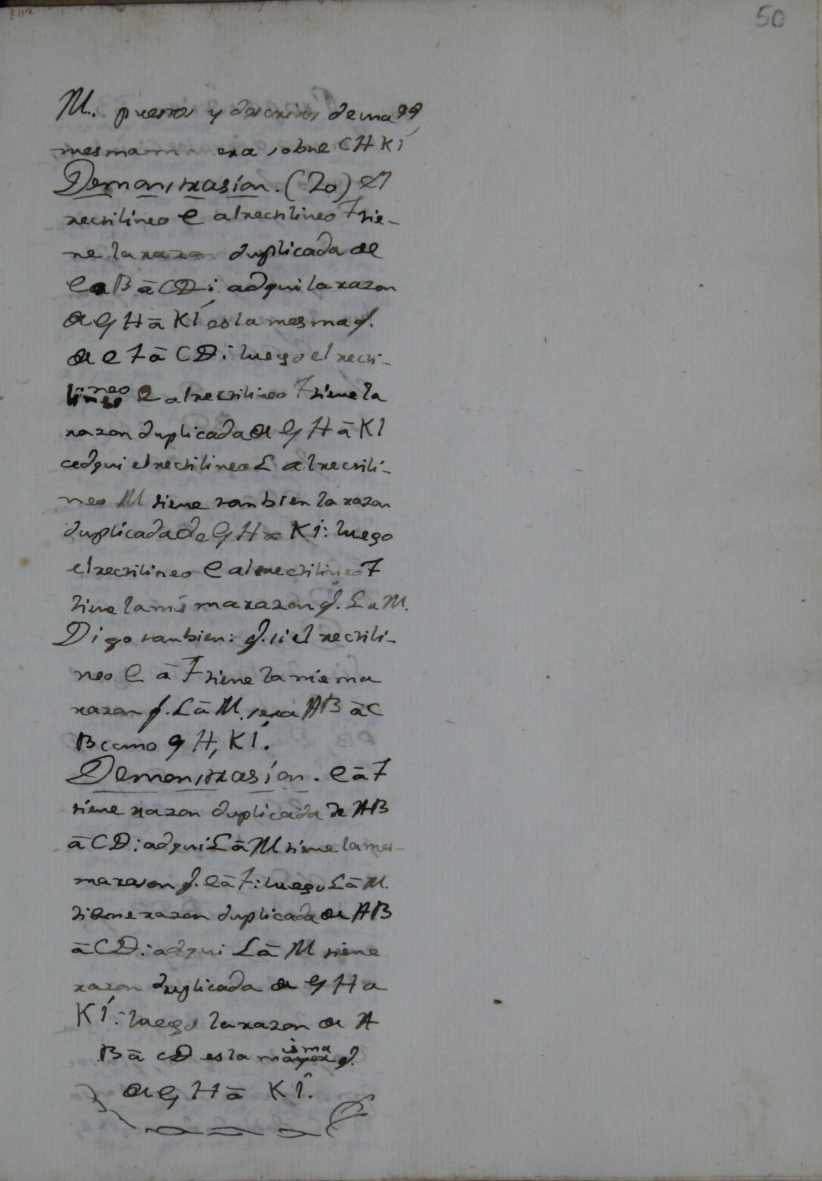 50
M. puestos y descritos de una
mesma manera sobre CHKI
Demonstrasion. (20) El
rectilineo E al rectilineo F tie-
ne la razon duplicada de
AB à CD: adqui la razon
de GH à KI es la mesma q.
de à CD: luego el recti-
lineo E al rectilineo F tiene la
razon duplicada de GH à KI
adqui el rectilineo L al rectili-
neo M tiene tanbien la razon
duplicada de GH à KI: luego
el rectilineo E al rectilineo F
tiene la mis ma razon q. L a M.
Digo tanbien: q. si el rectili-
neo E à F tiene la misma
razon q. L à M. sera AB à C
B como GH, KI.
Demonstrasion. E à F
tiene razon duplicada de AB
à CD: adqui L à M tiene la mes-
ma razon q. E à F: luego L à M.
tiene razon duplicada de AB
à CD: adqui L à M tiene
razon duplicada de GH a
KI: luego la razon de A
B à CD es la misma q.
de GH à KI.